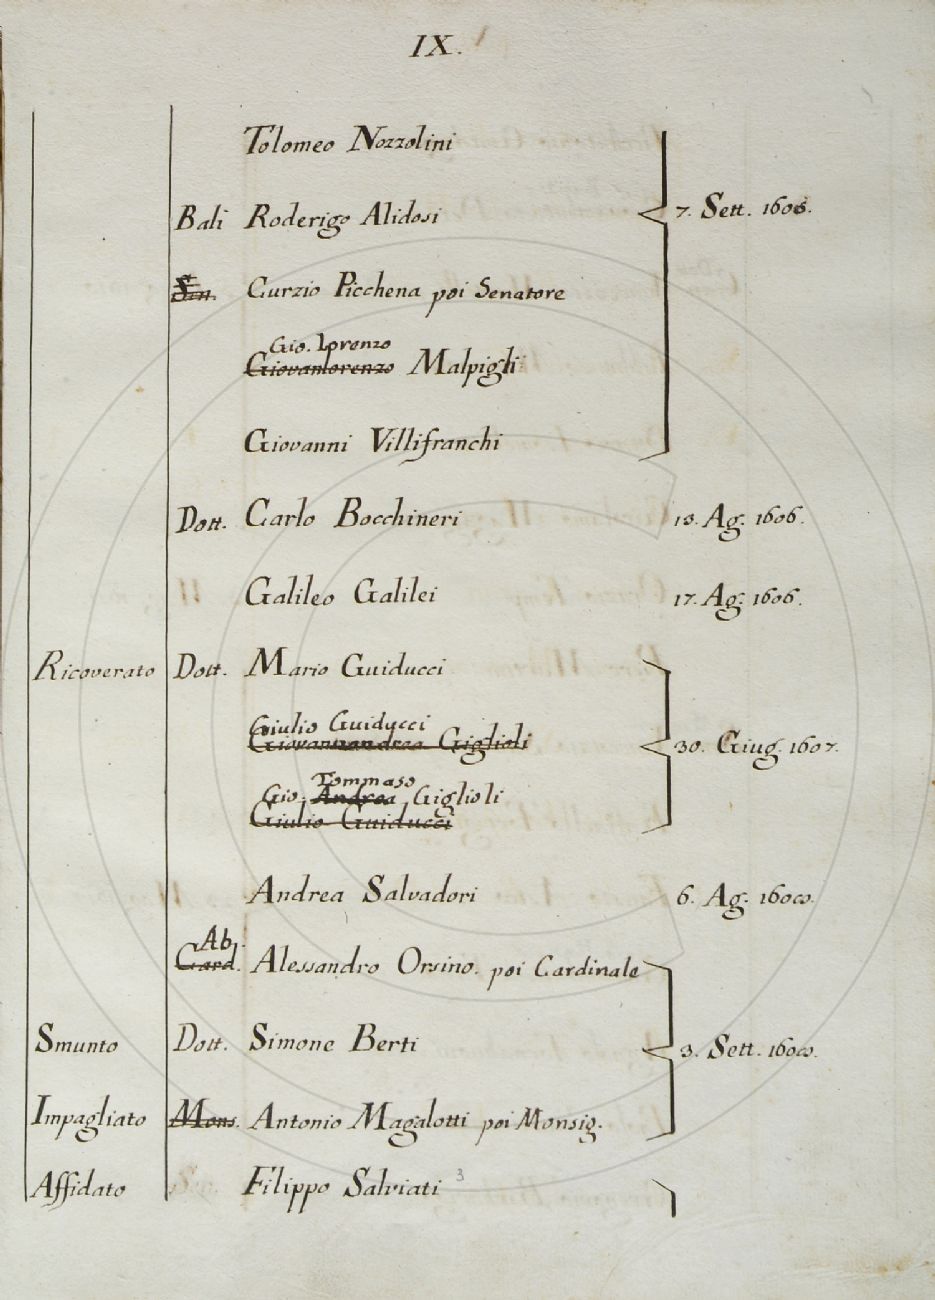 IX.
Tolomeo Nozzolini
Balì Roderigo Alidosi 7. Sett. 1606.
Sen. Curzio Picchena poi Senatore
Gio. Lorenzo
Giovanlorenzo Malpigli
Giovanni Villifranchi
Dott. Carlo Bocchineri 13. Ag. 1606.
Galileo Galilei 17. Ag. 1606.
Ricoverato Dott. Mario Guiducci
Giulio Guiducci
Giovannandrea Giglioli 30. Giug. 1607.
Tommaso
Gio. Andrea Giglioli
Giulio Guiducci
Andrea Salvadori 6. Ag. 160
Ab.
Card. Alessandro Orsino. poi Cardinale
Smunto Dott. Simone Berti 3. Sett. 160
Impagliato Mons. Antonio Magalotti poi Monsig.
Affidato Filippo Salviati 3